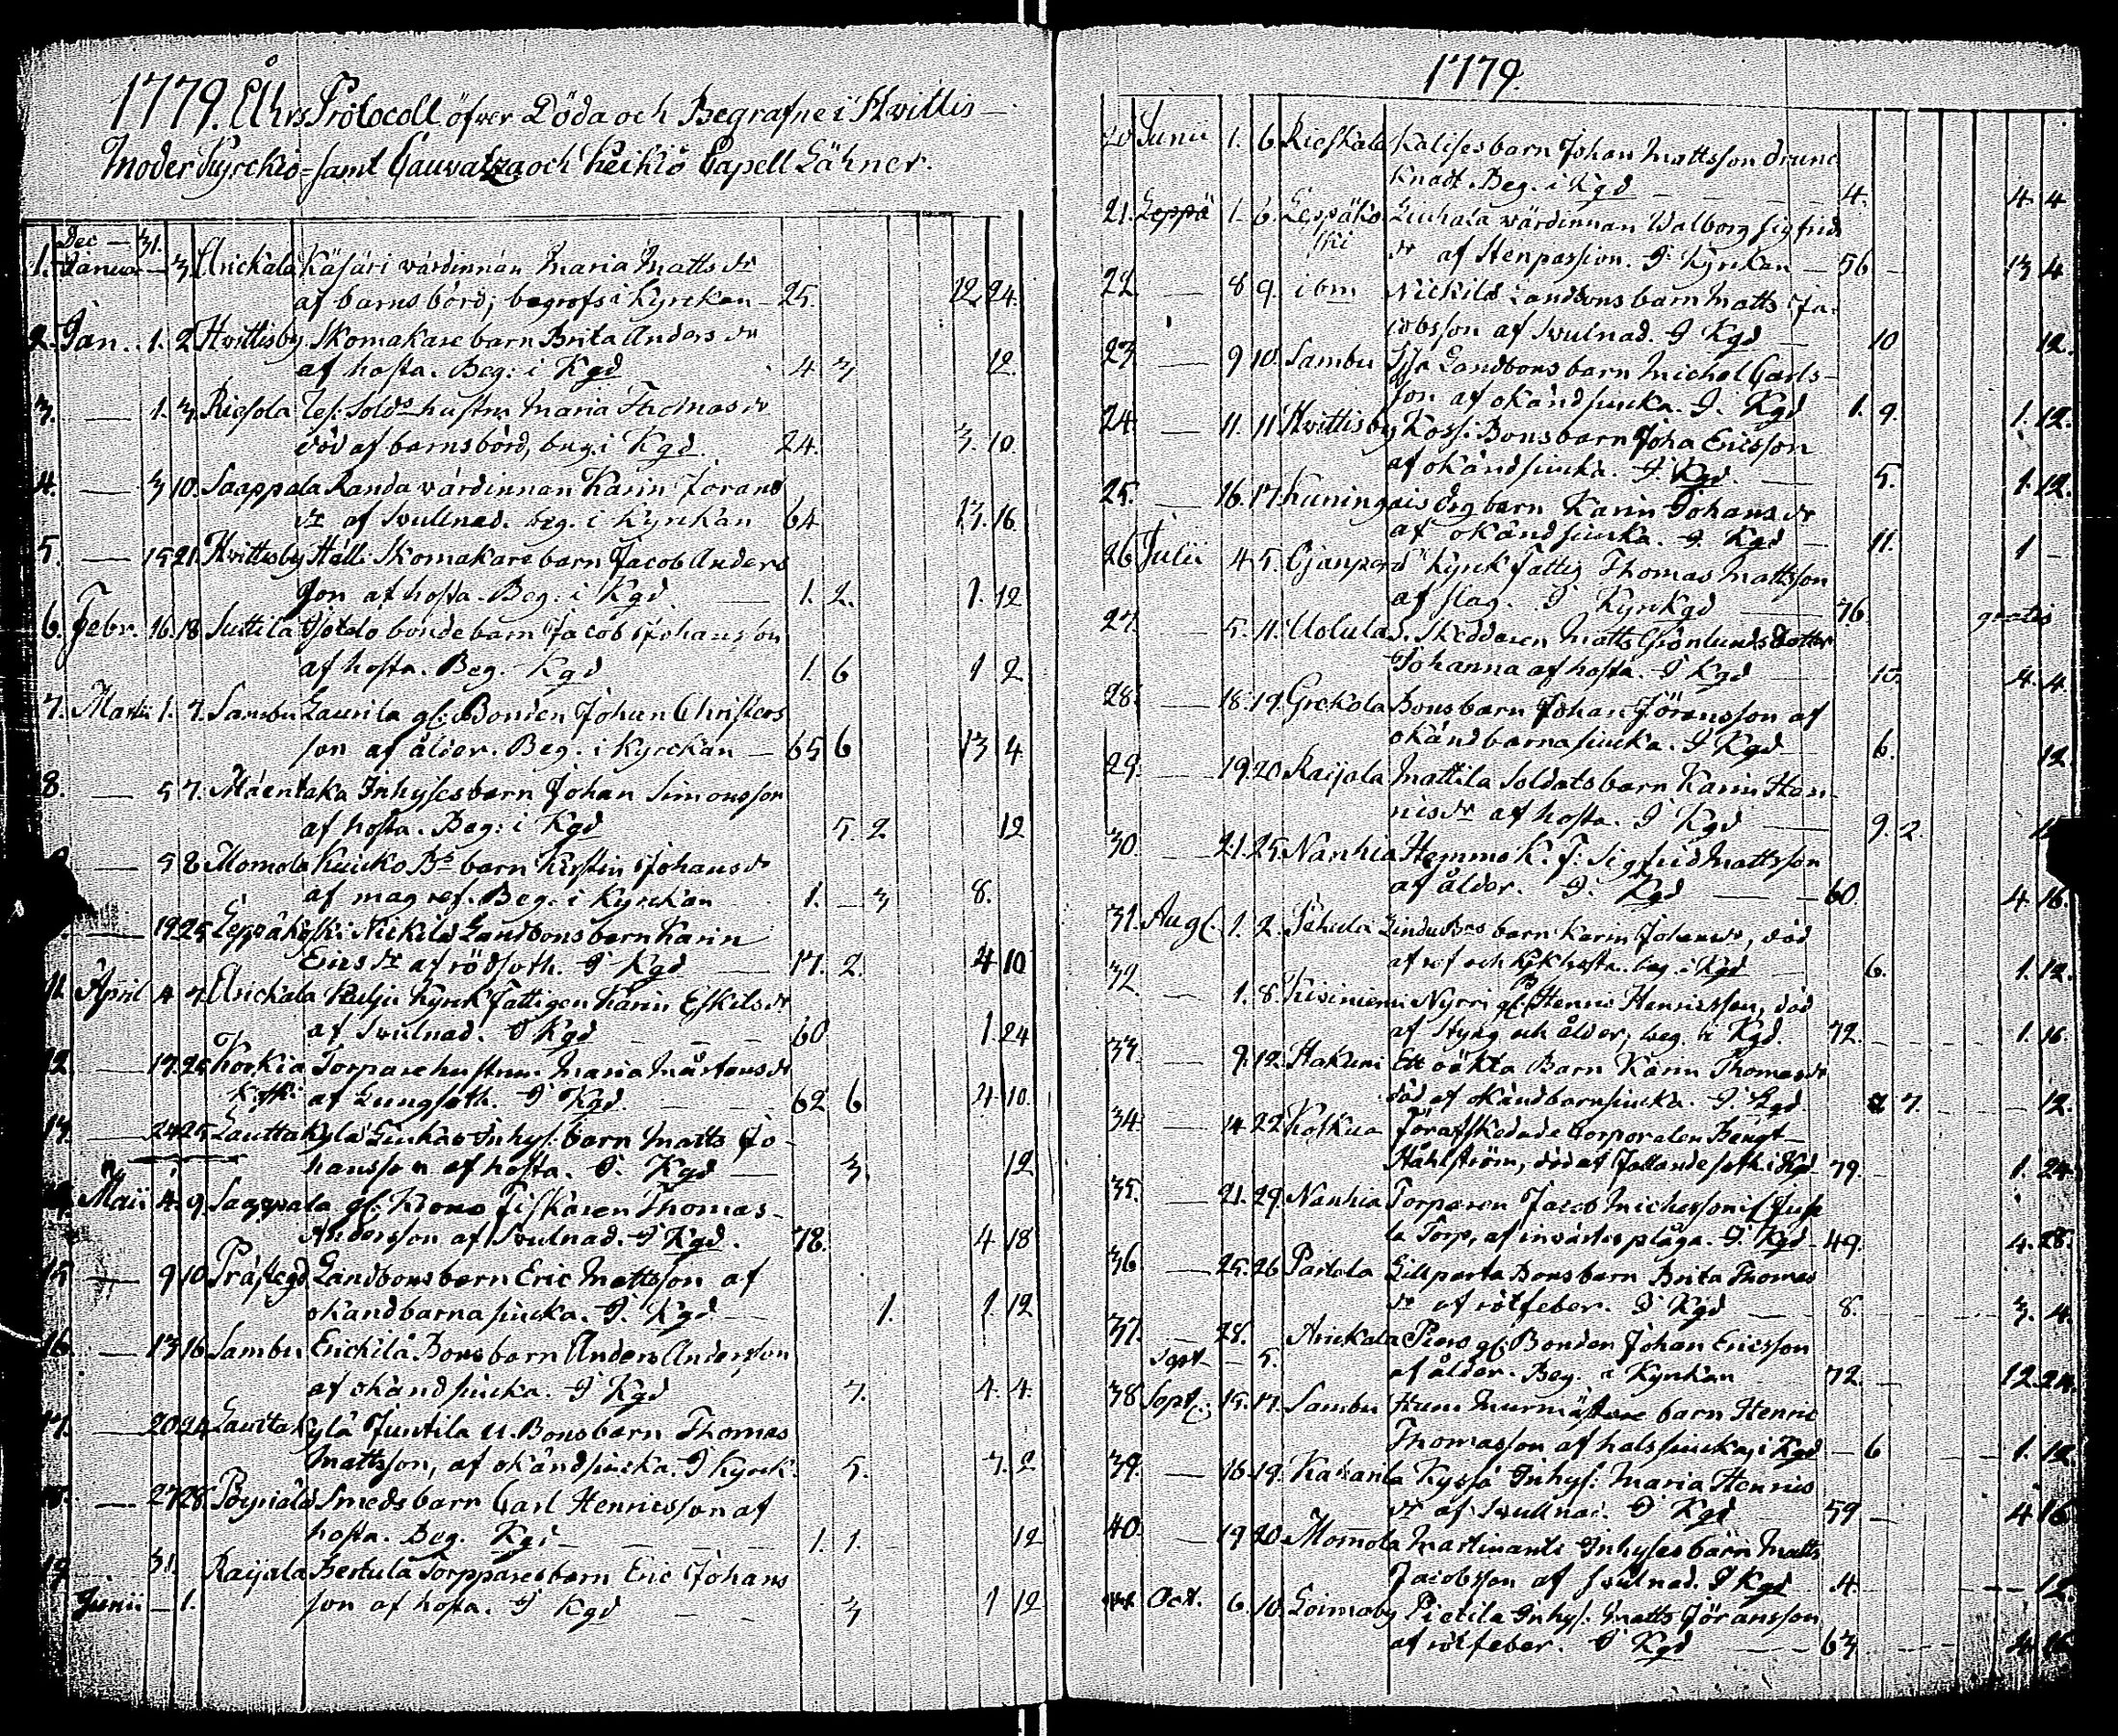 1779. Åhrs Protocoll öfver Döda och Begrafne i Hvittis
Moder Kyrckio- samt Cauvatza och Keikiö Capell Gähner.
Dec — 31.
1. Januar — 3. Arickala Käsäri värdinnan Maria Matts dr
af barnsbörd; begrofs i Kyrckan — 25. 12. 24.
2. Jan. 1. 2. Hvittisby Skomakare barn Brita Anders dr
af hosta. Beg: i Kgd 4 3 12.
3. — 1. 3. Riesola Solds hustru Maria Thomas dr
död af barnsbörd, beg. i Kgd. 24. 3. 10.
4. — 3 10. Saappala Randa värdinnan Karin Jörans
dr af Svullnad. beg. i Kyrckan 64 13. 16
5. — 15 21. Hvittisby Hälli Skomakare barn Jacob Anders
son af hosta. Beg: i Kgd. 1. 2. 1. 12
6. Febr. 16. 18. Suttila bondebarn Jacob Johansson
af hosta. Beg. Kgd 1. 6 1 2
7. Martii 1. 7. Sambu Laurila gl: Bonden Johan Christers
son af ålder. Beg. i Kyrckan — 65 6 13 4
8. — 5 7. Mäentaka Inhyses barn Johan Simonsson
af hosta. Beg: i Kgd 5. 2 12
— 5 8 Momola Kuicko Bs barn Kirstin Johans dr
af mag ref. Beg. i Kyrckan 1. — 3 8.
— 19 25 Leppäkoski Nickilä Landbonsbarn Karin
Erics dr af rödsoth. I Kgd 17. 2. 4 10
11. April 4 7. Arickala Kyrck Fattigen Karin Eskils dr
af Svulnad. I Kgd 60 1. 24
12. — 17. 25 Korkia Torpare hustrun Maria Mårtens dr
koski af Lungsoth. I Kgd. 62 6 4. 10.
13. — 24 25 Lauttakylä Inhys: barn Matts Jo-
hansson af hosta. I. Kgd 3. 12
Maii 4. 9. Saappala gl: Krono Fiskaren Thomas
Andersson af Svulnad. I Kgd. 78. 4 18
15 — 9 10 Prästegd Landbonsbarn Eric Mattsson af
okänd barnasiucka. I. Kgd — 1. 1. 12
16. — 13 16 Sambu Erickilä Bonsbarn Anders Andersson
af okänd siucka. I Kgd 7. 4. 4.
17. — 20 24 Lauttakylä Juntila U. Bonsbarn Thomas
Mattsson, af okänd siucka. I Kyrck. 5. 7. 2
— 27 28. Pöyriälä Smeds barn Carl Henricsson af
hosta. Beg. Kgd — 1. 1. 12
19 31. Raijala Bertula Torppares barn Eric Johans
Junii — 1. son af hosta. I Kgd 3 1 12
1779.
20 Junii 1. 6. Rieskala barn Johan Mattsson drunc
knadt. Beg. i Kgd 4. 4 4
21. Leppä 1. 6. Leppäko Liuhala värdinnan Walborg Sigfrids
ski dr af Stenpassion. I Kyrckan — 56 — 13 4
22. — 8 9. ibm Nickilä Landbons barn Matts Ja-
cobsson af Svulnad. I Kgd — 10 12.
23. — 9 10. Sambu Landbons barn Michel Carls-
son af okänd siucka. I. Kgd 1. 9. 1. 12.
24. — 11. 11 Hvittisby Kossi Bonsbarn Joha Ericsson
af okänd siucka. I. Kgd. — 5. 1. 12.
25. — 16. 17 Kuningais barn Karin Johans dr
af okänd siucka. I. Kgd — 11. 1 —
26 Julii 4 5. Kyrck Fattig Thomas Mattsson
af slag. I Kyrkgd — 76 gratis
27. — 5. 11. Uolula Matts Grönlunds Dotter
Johanna af hosta. I Kgd — 10. 4. 4.
28. — 18. 19. Grekola Bonsbarn Johan Jöransson af
okänd barnasiucka. I Kgd 6. 12
29. — 19. 20. Raijala Mattila Soldats barn Karin Hen-
rics dr af hosta. I Kgd 9. 2.
30. — 21. 25. Nanhia Hemmo K. F: Sigfrid Mattsson
af ålder. I. Kgd — 60. 4 16.
31. Aug. 1. 2. Pehula barn Karin Johans dr, död
af ref och Kikhosta. beg. i Kgd 6. 1. 12.
32. — 1. 8. Kiviniemi Nyrri gl: Henric Henricsson, död
af Styng och ålder, beg. i Kgd. 72. 1. 16.
33. — 9. 12. Hakuni Ett oäkta Barn Karin Thomas dr
död af okänd barnsiucka. I. Kgd. 7. 12.
34. — 14 22 Koskua Förafskedade Corporalen Bengt
Ståhlström, död af fallande soth i Kgd 79. 1. 24.
35. — 21. 29. Nanhia Torparen Jacob Michelsson
Torp, af invärtes plåga. I. Kgd — 49. 4. 28.
36 — 25. 26 Partola Lillparta Bonsbarn Brita Thomas
dr af rötfeber. I Kgd — 8. 3. 4.
37. — 28. Arickala Piero gl: Bonden Johan Ericsson
Sept — 5. af ålder. Beg. i Kyrckan 72. 12. 24.
38 Sept. 15. 17. Sambu Murmästare barn Henric
Thomasson af halssiucka, i Kgd — 6 1. 12.
39. — 16. 19. Kyssä Inhys: Maria Henrics
dr af Svullnad. I Kgd 59. — 4 16
40. — 19 20 Momola Martinanti Inhyses barn Matts
Jacobsson af Svulnad. I Kgd 4. 12
Oct. 6. 10. Loimaby Pietilä Inhys: Matts Jöransson
af rötfeber. I Kgd — 63 4. 16